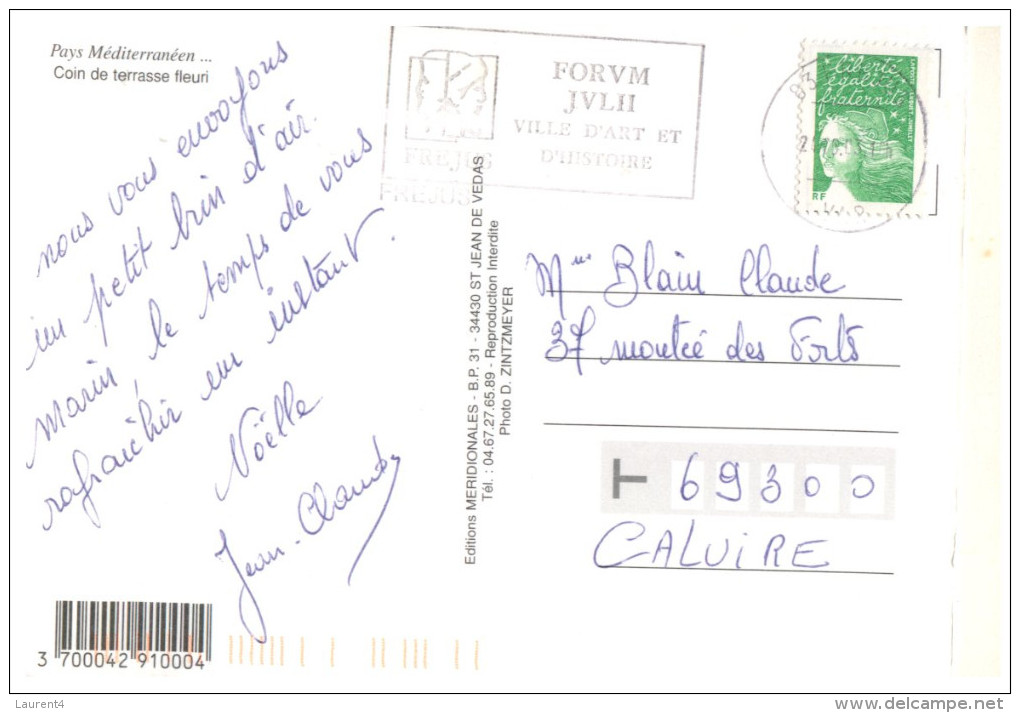 Pays Méditerranéen ...
Coin de terrasse fleuri
nous vous envoyons
un petit brin d'air
marin, le temps de vous
rafraîchir un instant.
Noëlle
Jean-Claude
3 700042 910004
Editions MERIDIONALES - B.P. 31 - 34430 ST JEAN DE VEDAS
Tél. : 04.67.27.65.89 - Reproduction Interdite
Photo D. ZINTZMEYER
FORVM
JVLII
VILLE D'ART ET
D'HISTOIRE
FREJUS
FREJUS
liberté
égalité
fraternité
RF
LA POSTE
Mme Blain Claude
37 montée des Forts
T 69300
CALUIRE
Laurent4
www.delcampe.net